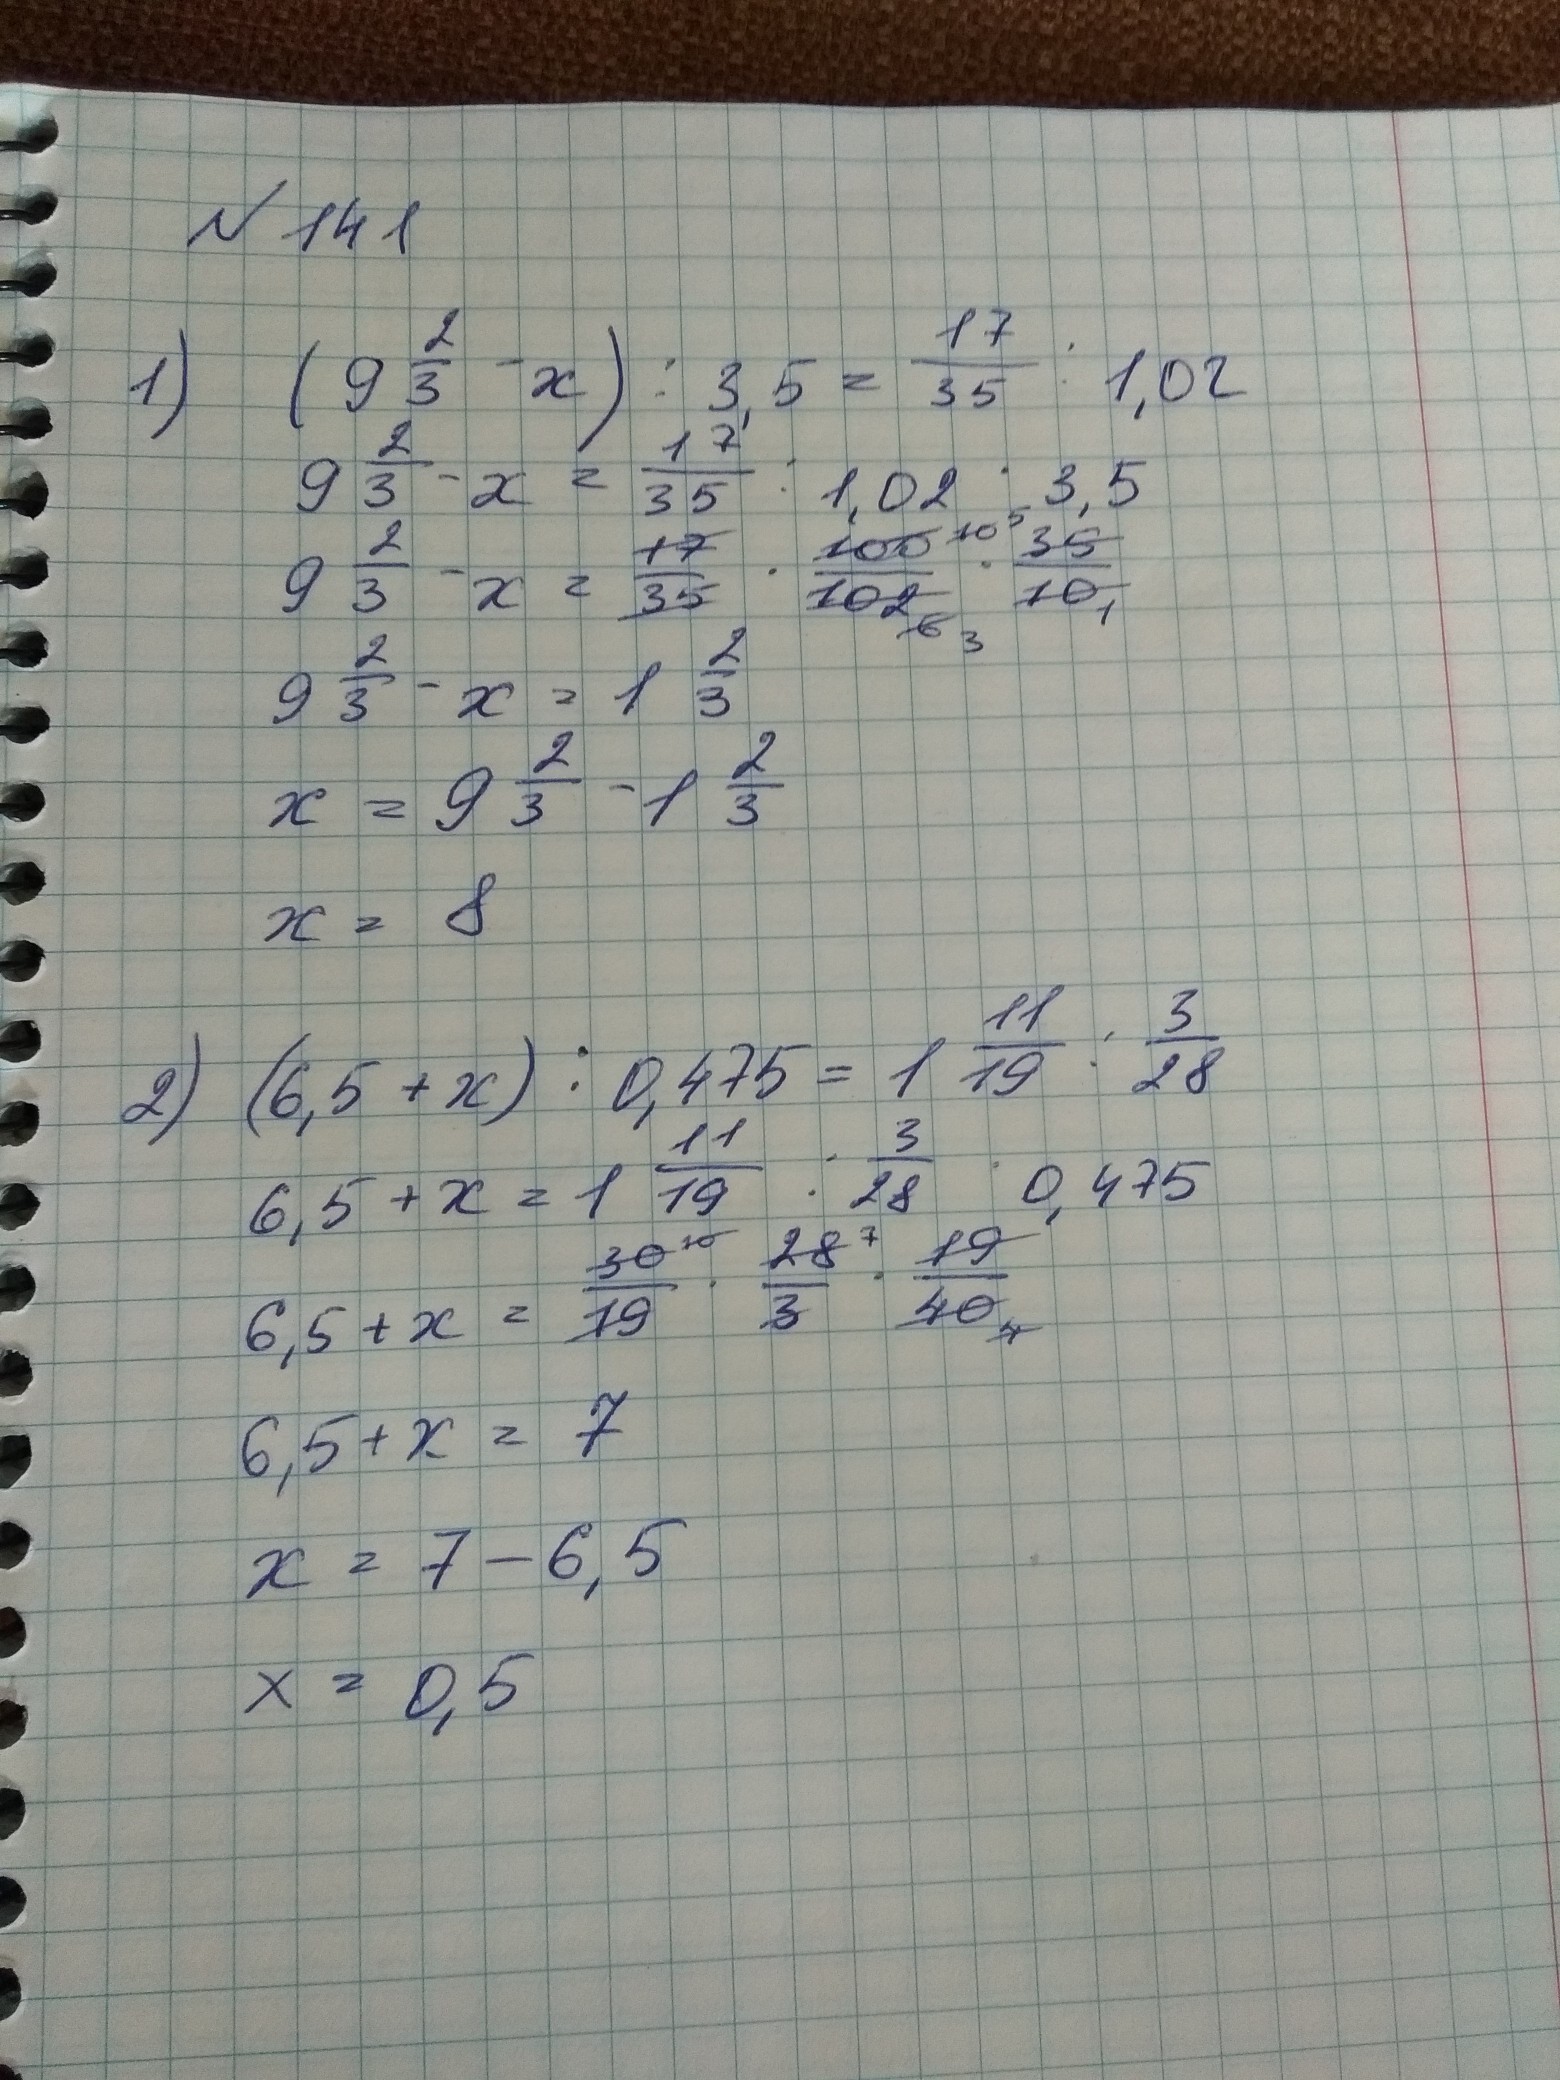 № 141
1) (9 2/3 - x) : 3,5 = 17/35 : 1,02
9 2/3 - x = 17/35 : 1,02 · 3,5
9 2/3 - x = 17/35 · 100/102 · 35/10 10 5 6 3 1
9 2/3 - x = 1 2/3
x = 9 2/3 - 1 2/3
x = 8
2) (6,5 + x) : 0,475 = 1 11/19 : 3/28
6,5 + x = 1 11/19 : 3/28 · 0,475
6,5 + x = 30/19 · 28/3 · 19/40 10 7 4
6,5 + x = 7
x = 7 - 6,5
x = 0,5